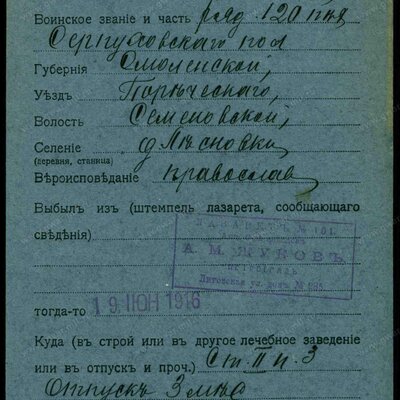 Воинское званіе и часть ряд. 120 пѣх
Серпуховскаго пол
Губернія Смоленской,
Уѣздъ Порѣческаго,
Волость Семеновской,
Селеніе д. Лѣсновки
(деревня, станица)
Вѣроисповѣданіе православ
Выбылъ изъ (штемпель лазарета, сообщающаго
свѣдѣнія)
ЛАЗАРЕТЪ № 101
А. М. ЖУКОВЪ
ПЕТРОГРАДЪ
Лиговская ул. домъ №
тогда-то 19 ІЮН 1916
Куда (въ строй или въ другое лечебное заведеніе
или въ отпускъ и проч.) Ст. II п. 3
Отпускъ 3 мѣс